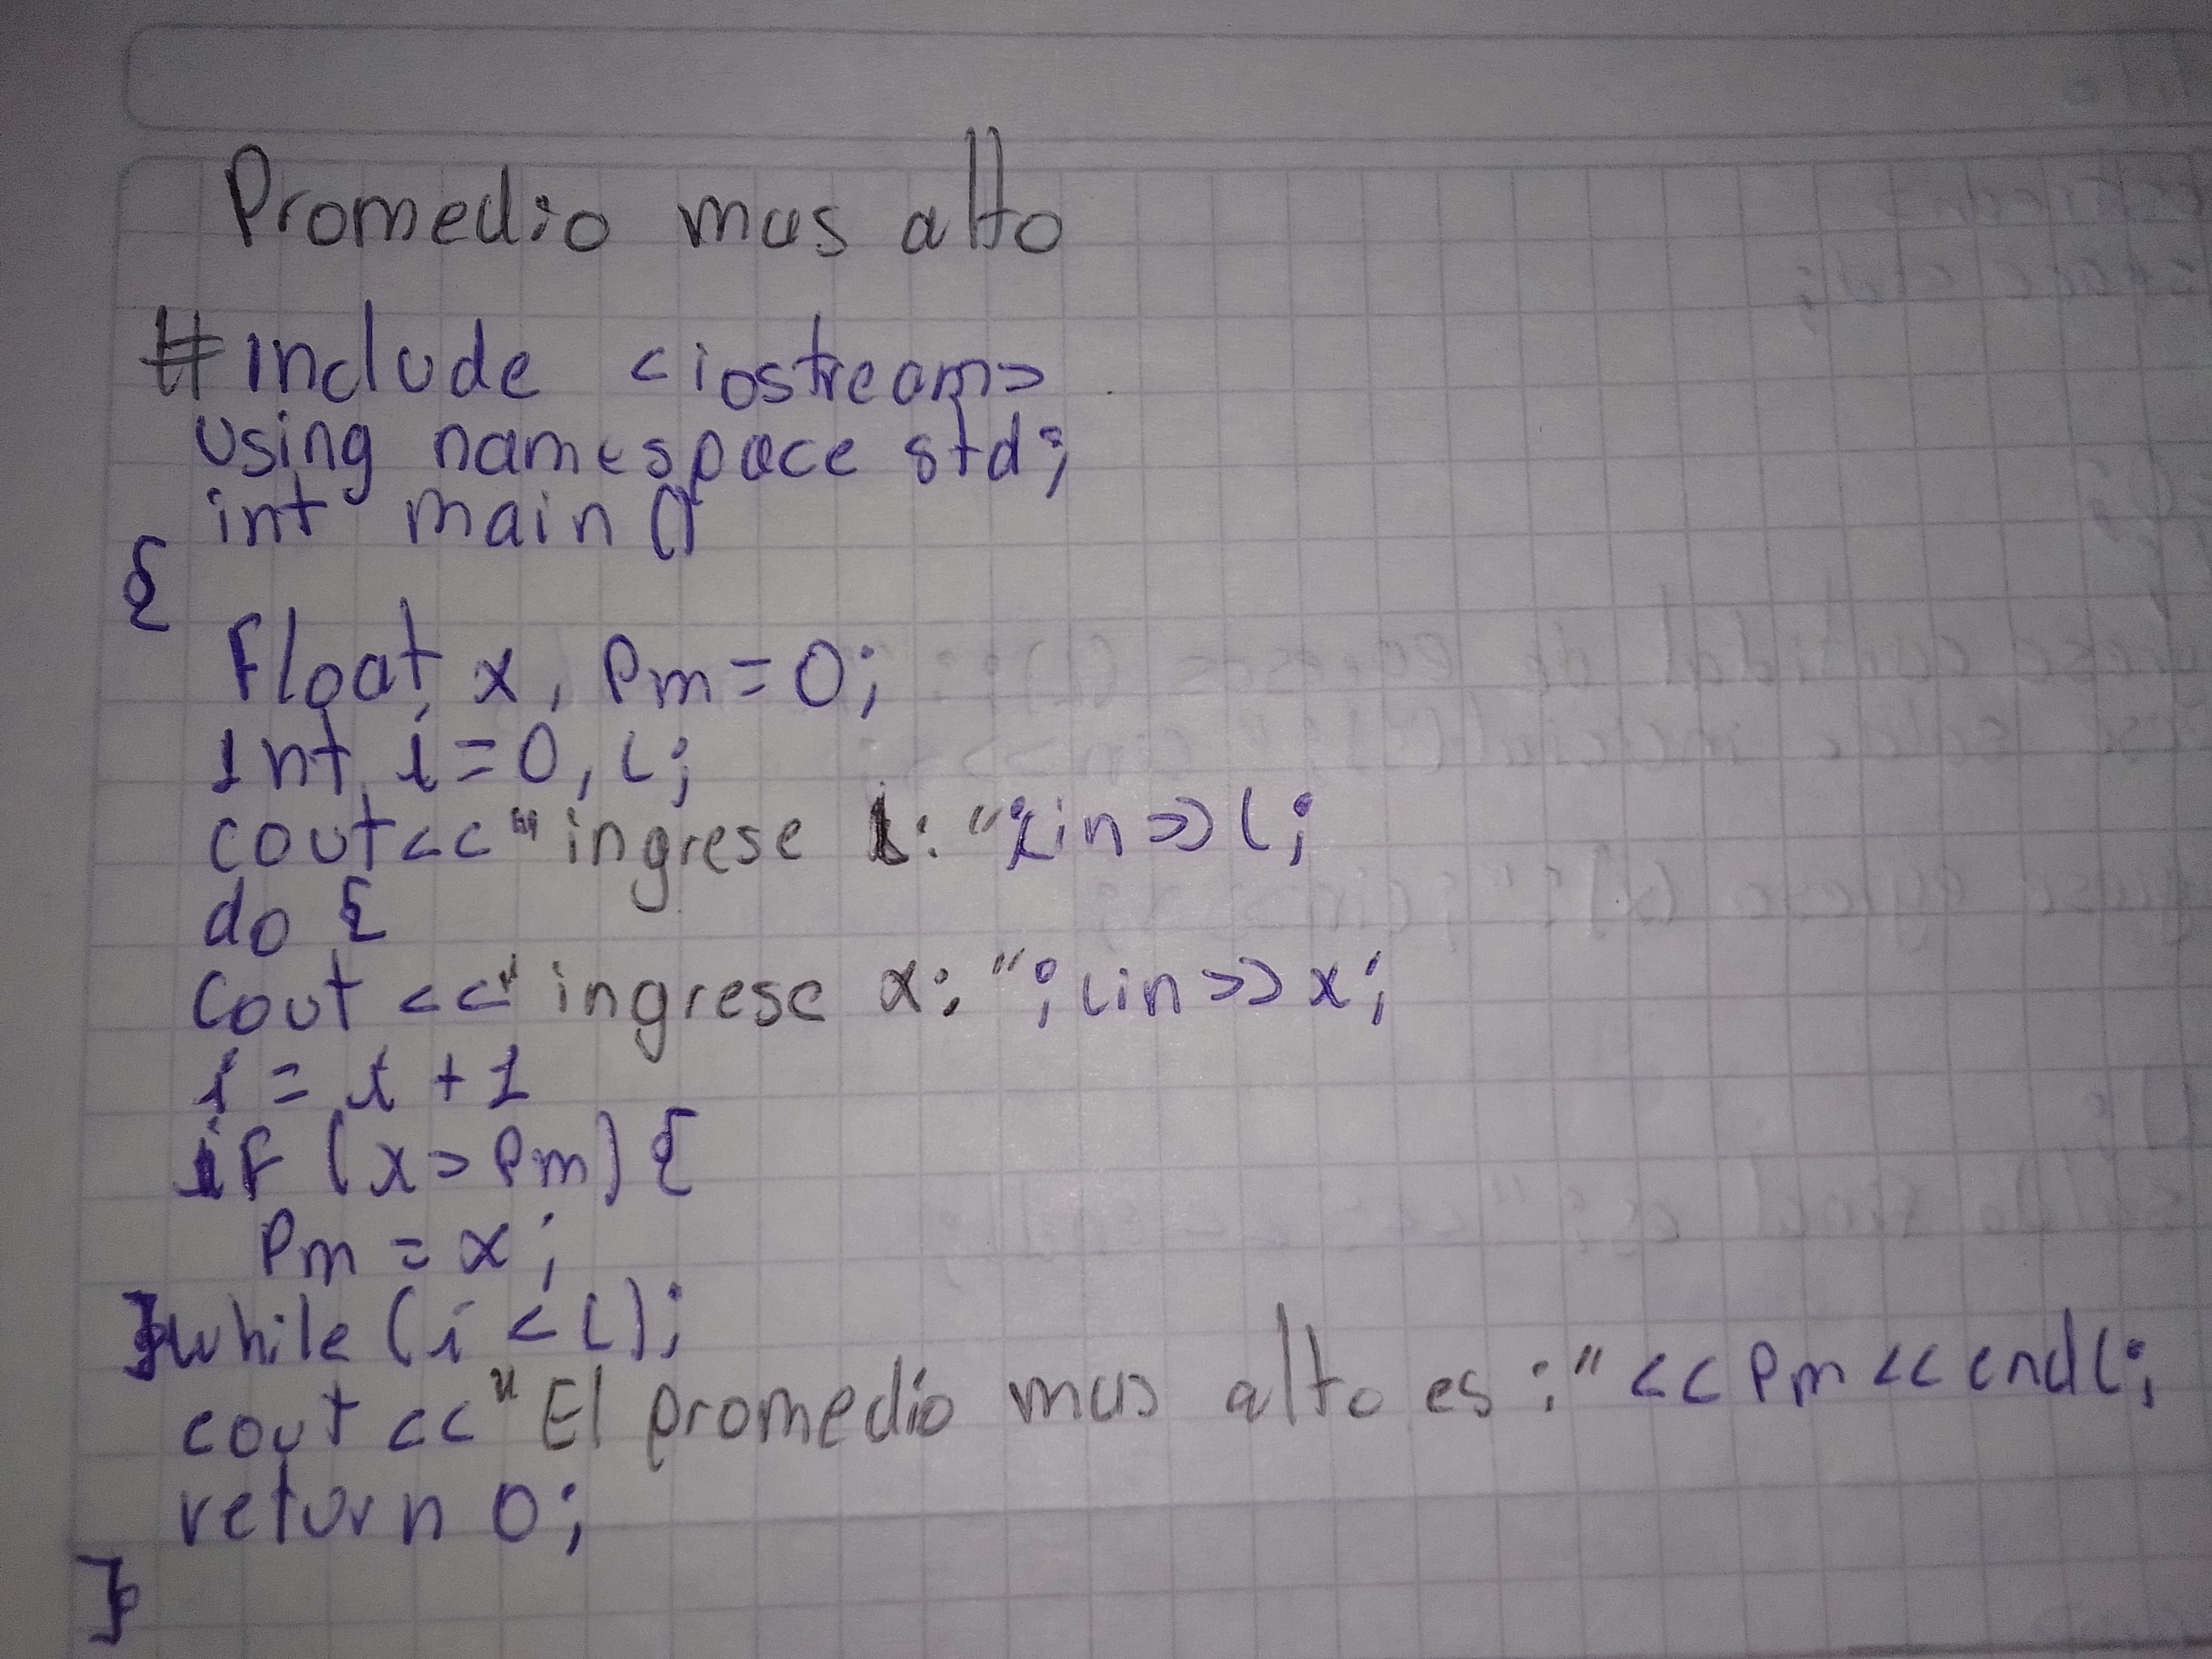 Promedio mas alto
#include <iostream>
using namespace std;
int main ()
{
Float x, Pm=0;
Int i=0, l;
cout<<"ingrese l: ";cin>>l;
do {
Cout <<"ingrese x: ";cin>>x;
i = i + 1
if (x>Pm) {
Pm = x;
}while (i < l);
cout <<"El promedio mas alto es :" <<Pm<<endl;
return 0;
}